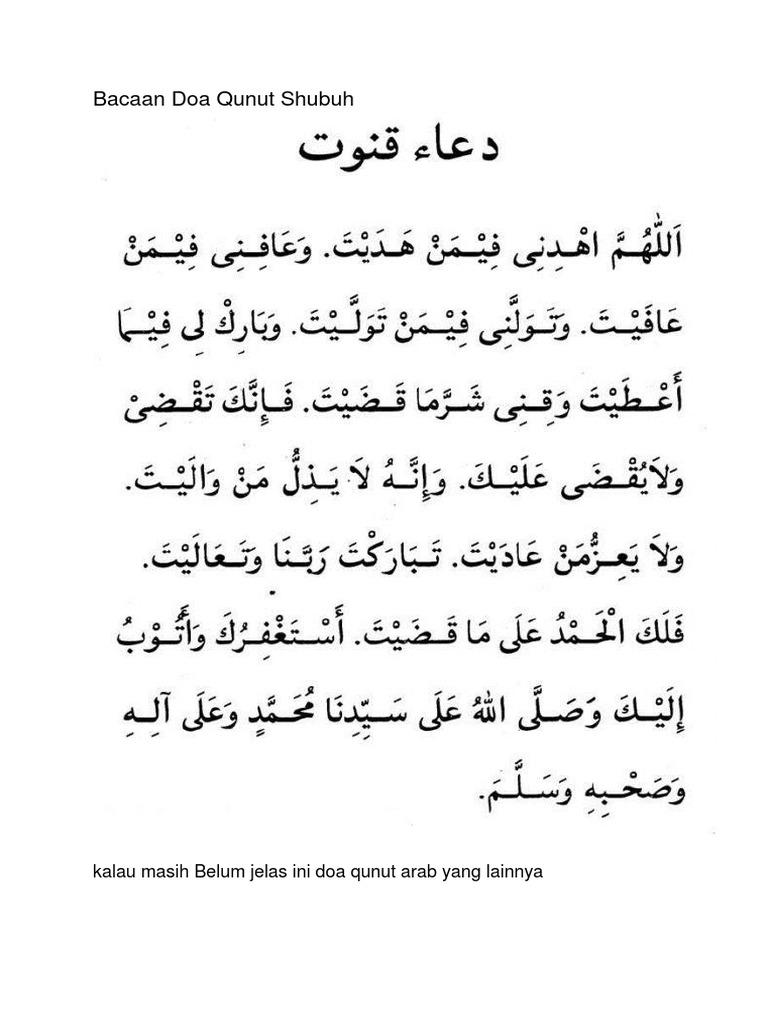 Bacaan Doa Qunut Shubuh
دعاء قنوت
اَللّٰهُمَّ اهْدِنِى فِيْمَنْ هَدَيْتَ. وَعَافِنِى فِيْمَنْ
عَافَيْتَ. وَتَوَلَّنِى فِيْمَنْ تَوَلَّيْتَ. وَبَارِكْ لِى فِيْمَا
أَعْطَيْتَ وَقِنِى شَرَّمَا قَضَيْتَ. فَإِنَّكَ تَقْضِىْ
وَلَايُقْضَى عَلَيْكَ. وَإِنَّهُ لَا يَذِلُّ مَنْ وَالَيْتَ.
وَلَا يَعِزُّمَنْ عَادَيْتَ. تَبَارَكْتَ رَبَّنَا وَتَعَالَيْتَ.
فَلَكَ الْحَمْدُ عَلَى مَا قَضَيْتَ. أَسْتَغْفِرُكَ وَأَتُوْبُ
إِلَيْكَ وَصَلَّى اللهُ عَلَى سَيِّدِنَا مُحَمَّدٍ وَعَلَى آلِهِ
وَصَحْبِهِ وَسَلَّمَ.
kalau masih Belum jelas ini doa qunut arab yang lainnya